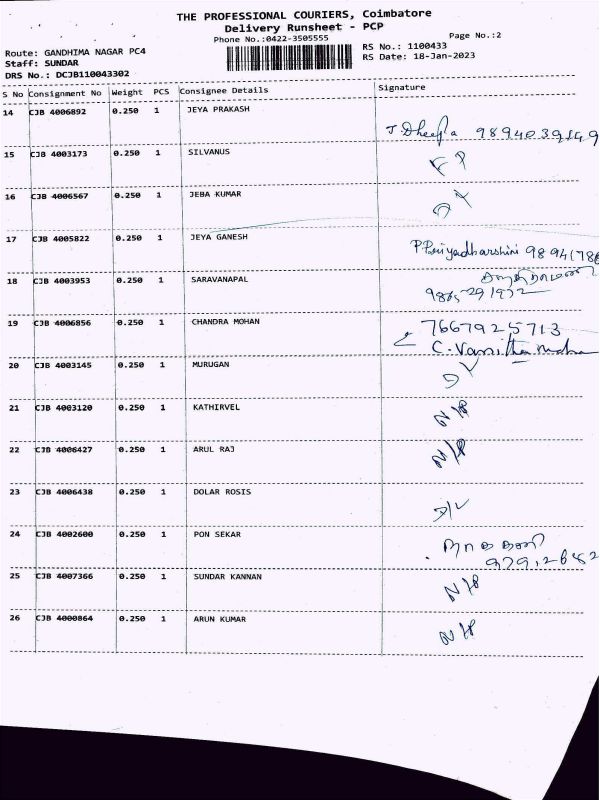 THE PROFESSIONAL COURIERS, Coimbatore
Delivery Runsheet - PCP
Phone No.:0422-3505555
Page No.:2
Route: GANDHIMA NAGAR PC4
RS No.: 1100433
Staff: SUNDAR
RS Date: 18-Jan-2023
DRS No.: DCJB110043302
S No Consignment No Weight PCS Consignee Details Signature
14 CJB 4006892 0.250 1 JEYA PRAKASH
J. Dheepa 9894039149
15 CJB 4003173 0.250 1 SILVANUS
16 CJB 4006567 0.250 1 JEBA KUMAR
17 CJB 4005822 0.250 1 JEYA GANESH
P. Priyadharshini 98941786
18 CJB 4003953 0.250 1 SARAVANAPAL
19 CJB 4006856 0.250 1 CHANDRA MOHAN
7667925713
C. Vanitha
20 CJB 4003145 0.250 1 MURUGAN
D/L
21 CJB 4003120 0.250 1 KATHIRVEL N/P
22 CJB 4006427 0.250 1 ARUL RAJ N/P
23 CJB 4006438 0.250 1 DOLAR ROSIS D/L
24 CJB 4002600 0.250 1 PON SEKAR
25 CJB 4007366 0.250 1 SUNDAR KANNAN N/P
26 CJB 4000864 0.250 1 ARUN KUMAR N/P